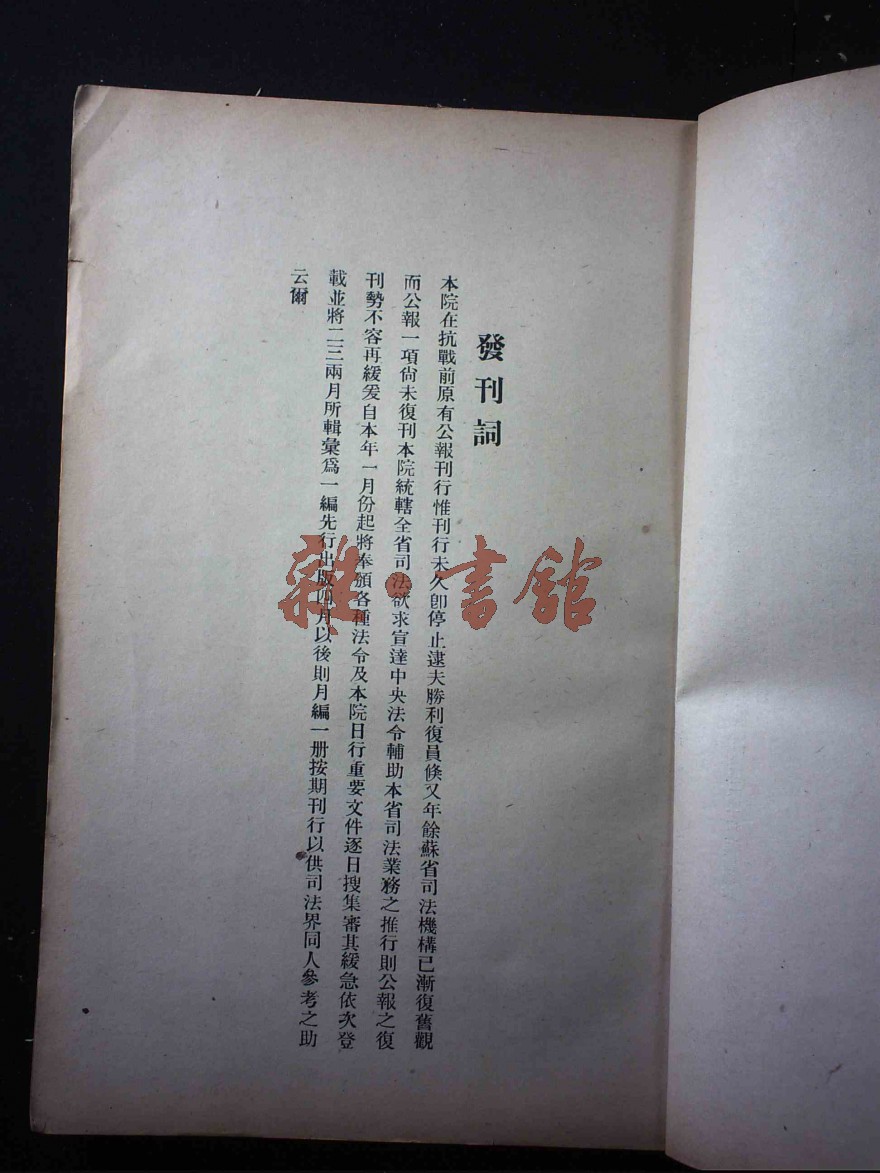 發刊詞
本院在抗戰前原有公報刊行惟刊行未久卽停止逮夫勝利復員倏又年餘蘇省司法機構已漸復舊觀
而公報一項尙未復刊本院統轄全省司法欲求宣達中央法令輔助本省司法業務之推行則公報之復
刊勢不容再緩爰自本年一月份起將奉頒各種法令及本院日行重要文件逐日搜集審其緩急依次登
載並將一二三兩月所輯彙爲一編先行出版四月以後則月編一册按期刊行以供司法界同人參考之助
云爾
雜·書館